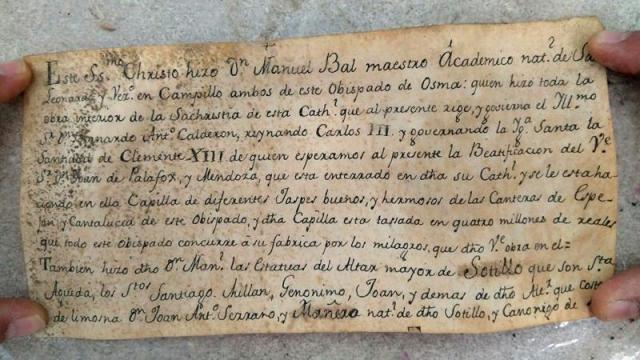 Este Ss.mo Christo hizo Dn Manuel Bal maestro Academico nat.l de Sn
Leonardo y Vez.o en Campillo ambos de este Obispado de Osma: quien hizo toda la
obra interior de la Sachristia de esta Cath.l que al presente rige, y govierna el Ill.mo
Sr. Dn Bernardo Ant.o Calderon, reynando Carlos III. y governando la Ig.a Santa la
Santidad de Clemente XIII de quien esperamos al presente la Beatificacion del V.e
Sr. Dn Juan de Palafox, y Mendoza, que esta enterrado en dha su Cath.l y se le esta ha-
ciendo en ella Capilla de diferentes Jaspes buenos, y hermosos de las Canteras de Espe-
jon, y Cantalucia de este Obispado, y dha Capilla esta tasada en quatro millones de reales
que todo este Obispado concurre á su fabrica por los milagros, que dho V.e obra en el=
Tambien hizo dho Dn Man.l las Estatuas del Altar mayor de Sotillo que son S.ta
Agueda, los S.tos Santiago, Millan, Geronimo, Joan, y demas de dho Alt.r que costeó
de limosna Dn Joan Ant.o Serrano, y Mañero nat.l de dho Sotillo, y Canonigo de